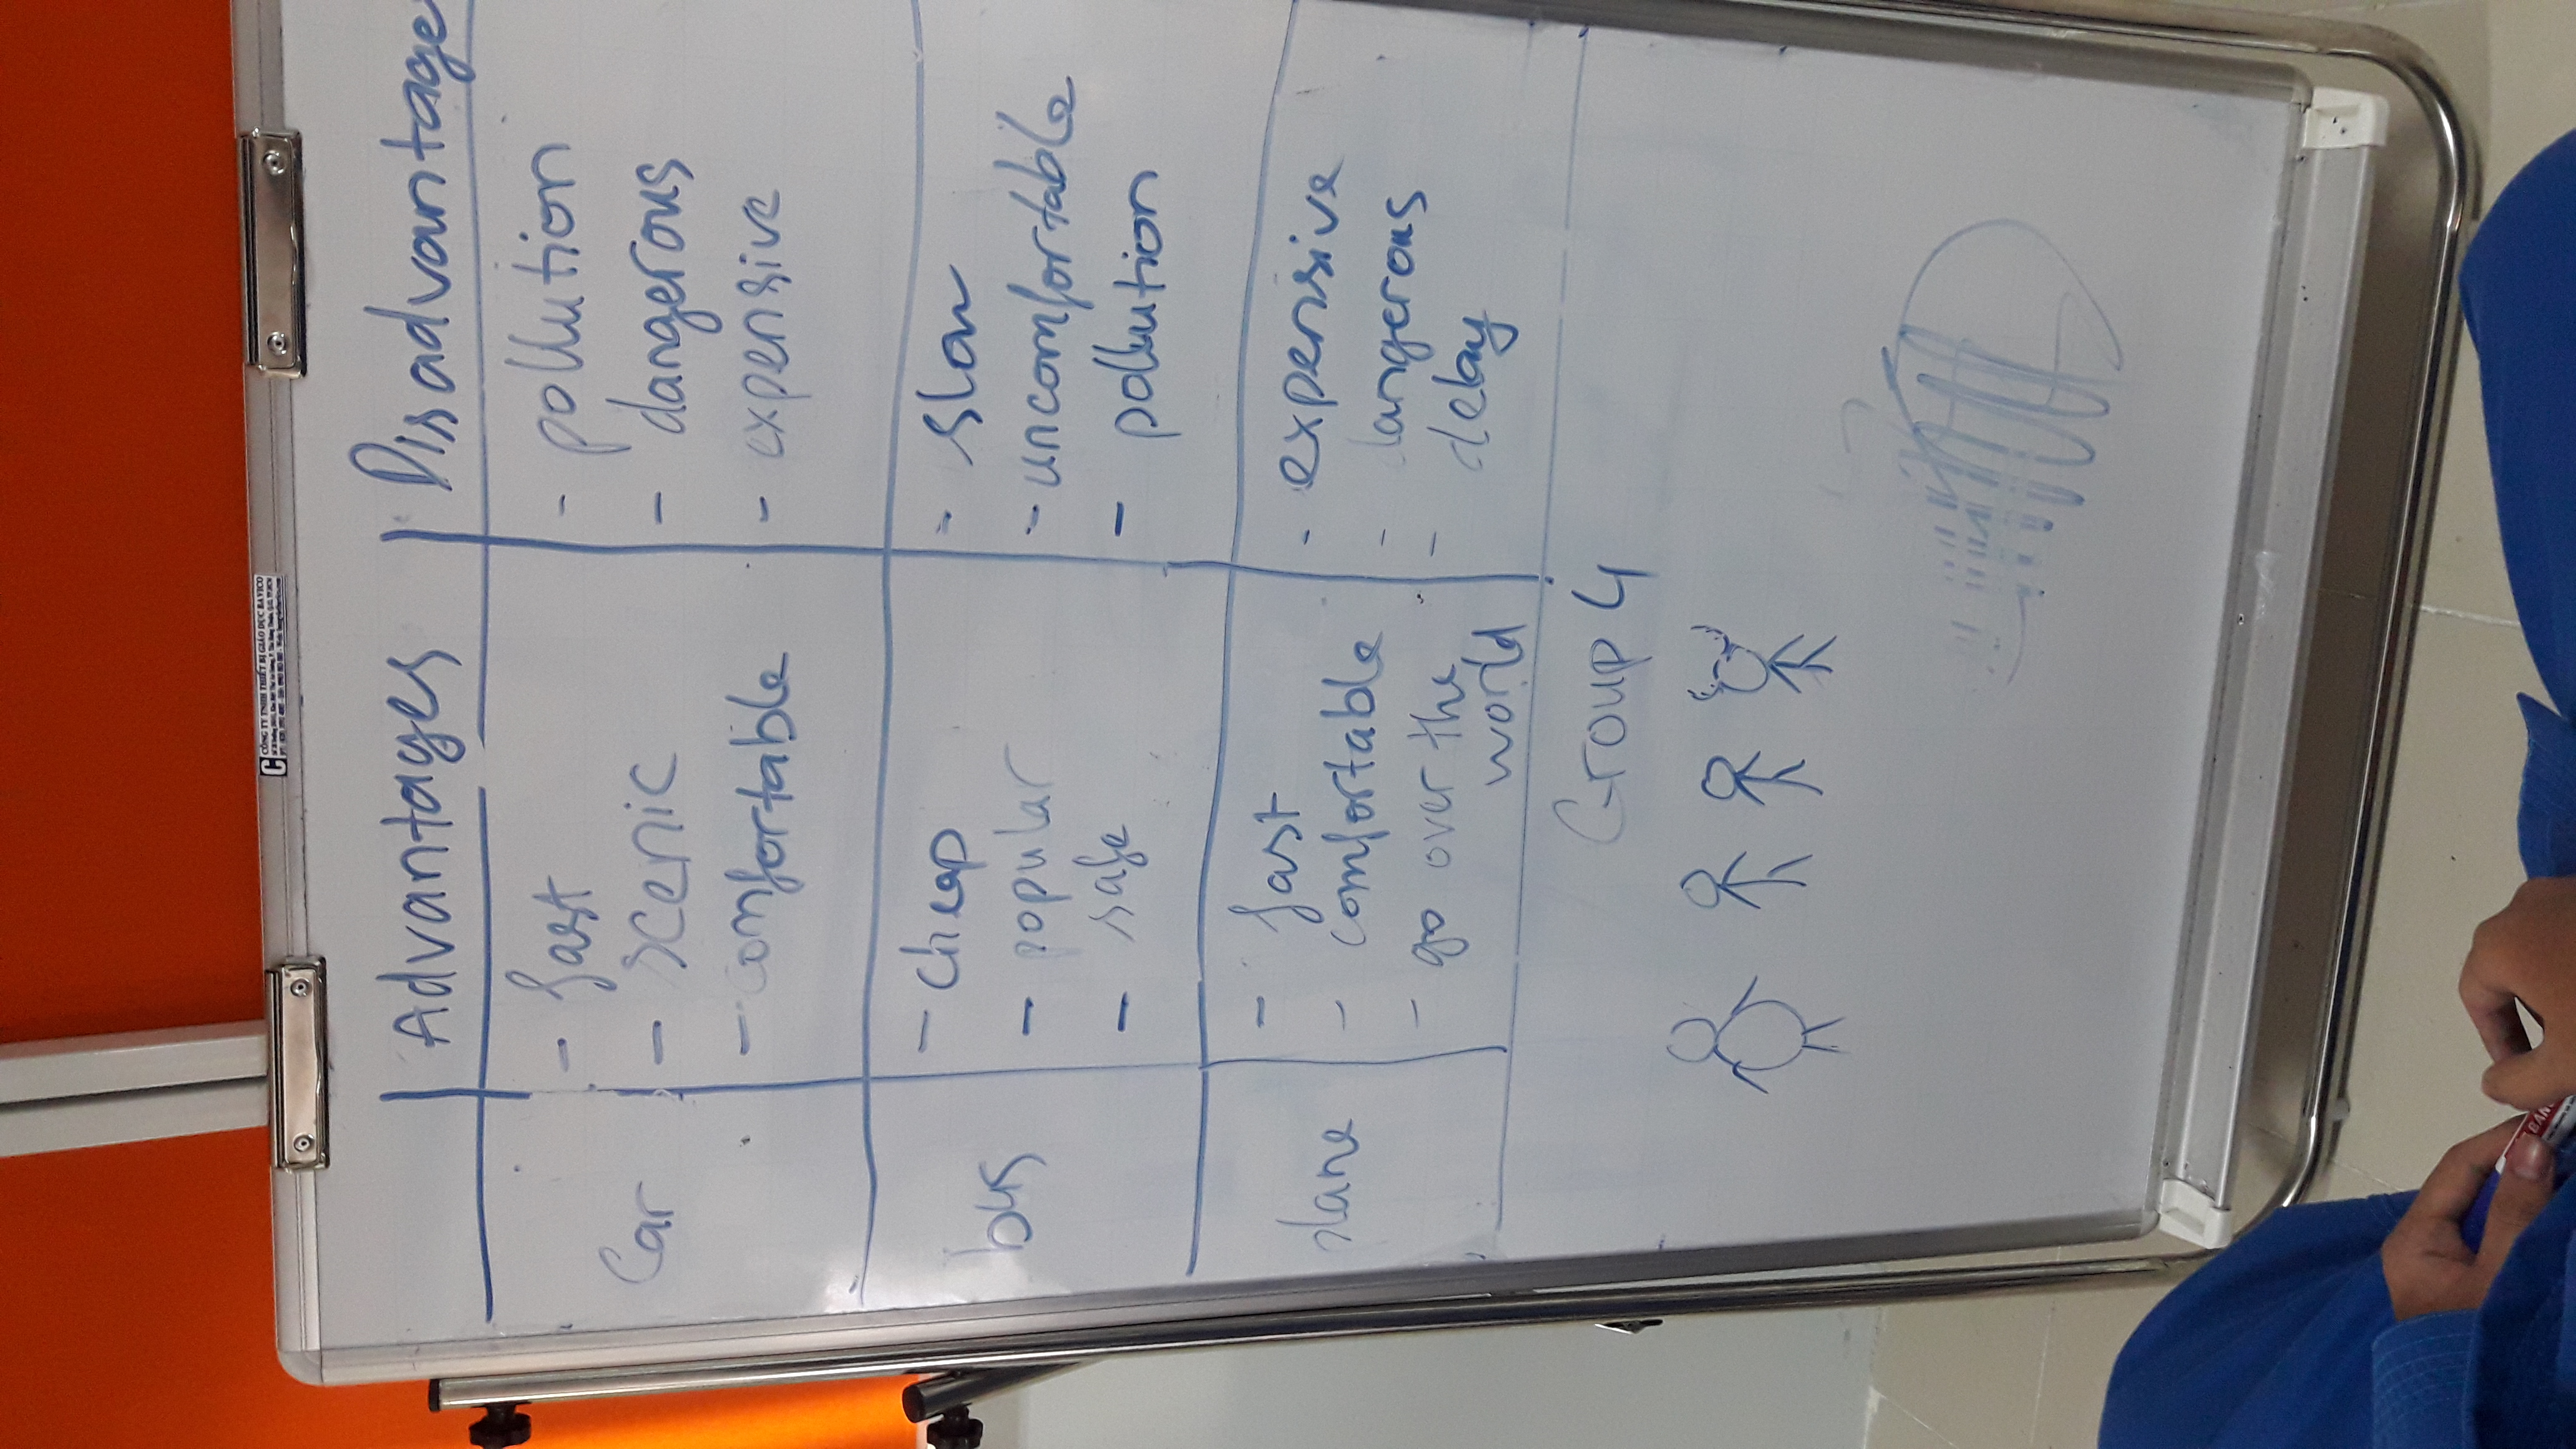 CÔNG TY TNHH THIẾT BỊ GIÁO DỤC BAVICO
Advantages Disadvantage
Car
- fast
- scenic
- comfortable
- pollution
- dangerous
- expensive
bus
- cheap
- popular
- safe
- slow
- uncomfortable
- pollution
plane
- fast
- comfortable
- go over the
world
- expensive
- dangerous
- delay
Group 4